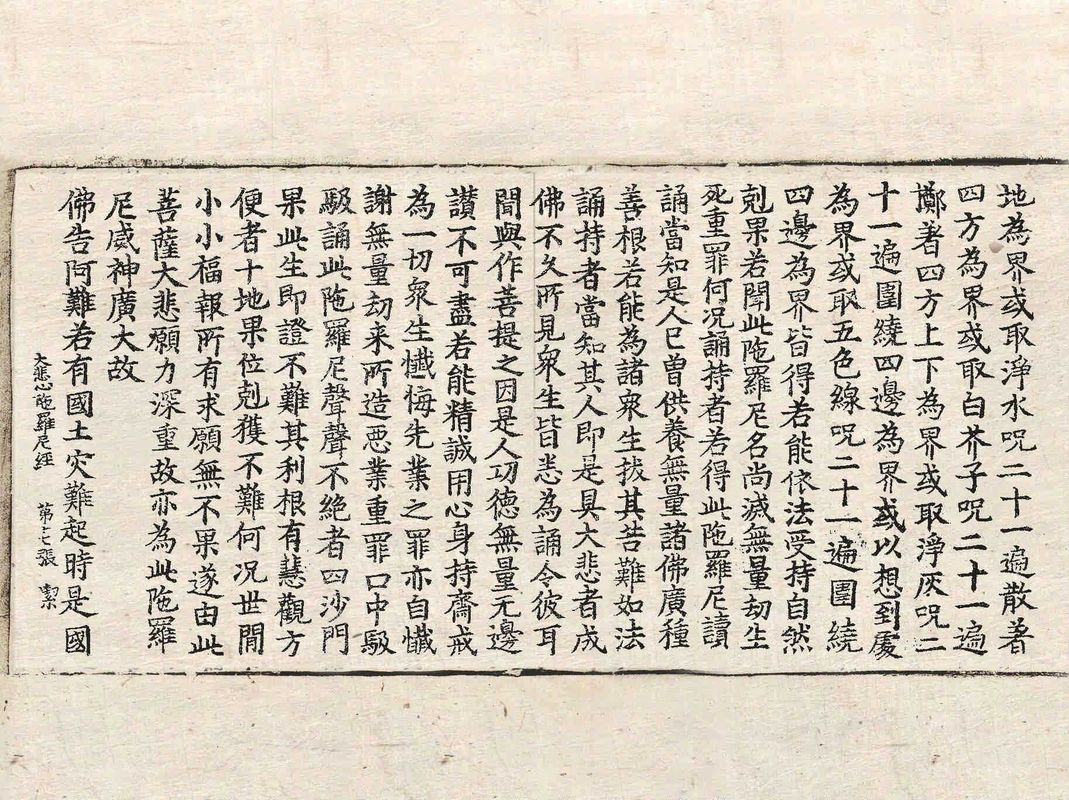 地為界或取淨水呪二十一遍散著
四方為界或取白芥子呪二十一遍
擲著四方上下為界或取淨灰呪二
十一遍圍繞四邊為界或以想到處
為界或取五色線呪二十一遍圍繞
四邊為界皆得若能依法受持自然
剋果若聞此陁羅尼名尚滅無量劫生
死重罪何况誦持者若得此陁羅尼讀
誦當知是人已曽供養無量諸佛廣種
善根若能為諸衆生拔其苦難如法
誦持者當知其人即是具大悲者成
佛不久所見衆生皆悉為誦令彼耳
聞與作菩提之因是人功徳無量无邊
讃不可盡若能精誠用心身持齋戒
為一切衆生懺悔先業之罪亦自懺
謝無量劫来所造惡業重罪口中馺
馺誦此陁羅尼聲聲不絶者四沙門
果此生即證不難其利根有慧觀方
便者十地果位剋獲不難何况世間
小小福報所有求願無不果遂由此
菩薩大悲願力深重故亦為此陁羅
尼威神廣大故
佛告阿難若有國土灾難起時是國
大悲心陁羅尼經 第十七張 潔